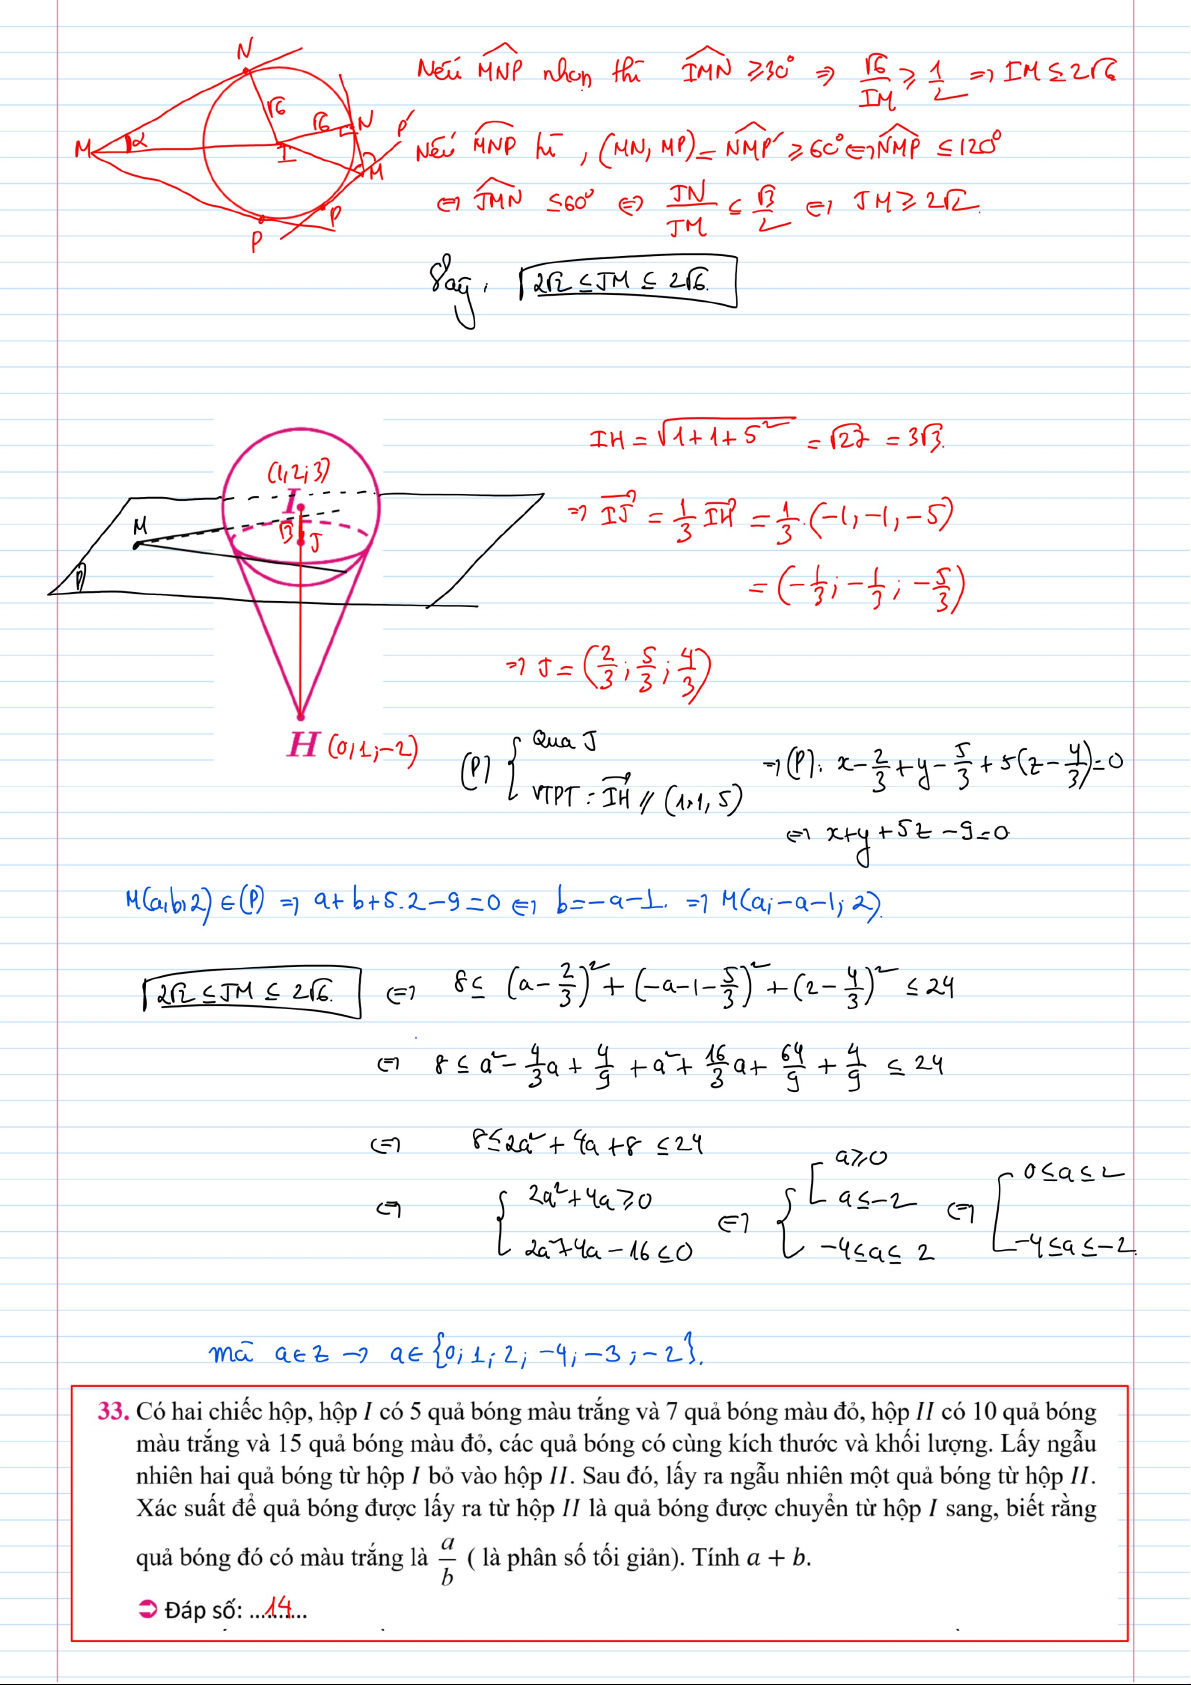 N
Nếu MNP nhọn thì IMN ≥ 30° ⇒ √6/IM ≥ 1/2 ⇒ IM ≤ 2√6
M α √6 √6 N P' I M P P
Nếu MNP tù, (MN, MP) = NMP' ≥ 60° ⇔ NMP ≤ 120°
⇔ JMN ≤ 60° ⇔ JN/JM ≤ √3/2 ⇔ JM ≥ 2√2.
Vậy, 2√2 ≤ JM ≤ 2√6.
IH = √(1+1+5²) = √27 = 3√3.
(1,2;3)
I
⇒ IJ = 1/3 IH = 1/3.(-1,-1,-5)
M √3 J
P
= (-1/3; -1/3; -5/3)
⇒ J = (2/3; 5/3; 4/3)
H (0,1;-2)
(P) { Qua J
VTPT: IH // (1,1,5)
⇒ (P): x - 2/3 + y - 5/3 + 5(z - 4/3) = 0
⇔ x+y+5z-9=0
M(a,b,2) ∈ (P) ⇒ a+b+5.2-9=0 ⇔ b=-a-1. ⇒ M(a;-a-1;2).
2√2 ≤ JM ≤ 2√6. ⇔ 8 ≤ (a - 2/3)² + (-a-1-5/3)² + (2 - 4/3)² ≤ 24
⇔ 8 ≤ a² - 4/3a + 4/9 + a² + 16/3a + 64/9 + 4/9 ≤ 24
⇔ 8 ≤ 2a² + 4a + 8 ≤ 24
⇔ { 2a²+4a ≥ 0
2a²+4a-16 ≤ 0
⇔ { [ a ≥ 0
a ≤ -2
-4 ≤ a ≤ 2
⇔ [ 0 ≤ a ≤ 2
-4 ≤ a ≤ -2.
mà a∈Z → a∈{0;1;2;-4;-3;-2}.
33. Có hai chiếc hộp, hộp I có 5 quả bóng màu trắng và 7 quả bóng màu đỏ, hộp II có 10 quả bóng
màu trắng và 15 quả bóng màu đỏ, các quả bóng có cùng kích thước và khối lượng. Lấy ngẫu
nhiên hai quả bóng từ hộp I bỏ vào hộp II. Sau đó, lấy ra ngẫu nhiên một quả bóng từ hộp II.
Xác suất để quả bóng được lấy ra từ hộp II là quả bóng được chuyển từ hộp I sang, biết rằng
quả bóng đó có màu trắng là a/b ( là phân số tối giản). Tính a + b.
➲ Đáp số: ...14...